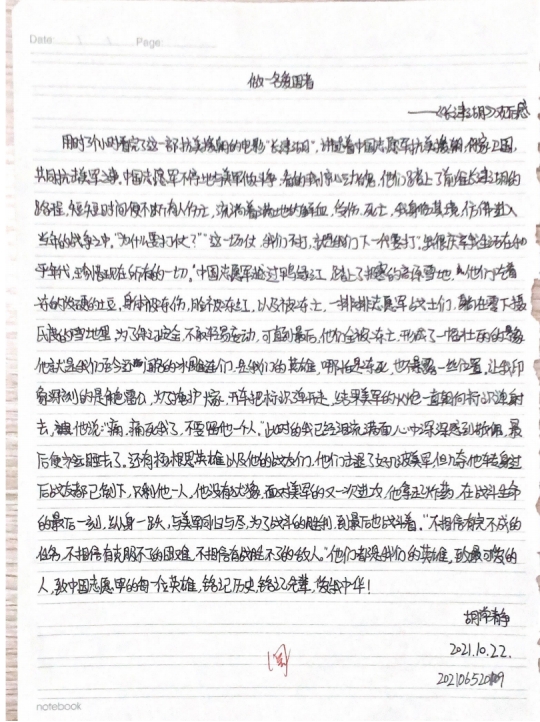 Date: Page:
做一名爱国者
——《长津湖》观后感
用时3个小时看完了这一部抗美援朝的电影"长津湖",讲述着中国志愿军抗美援朝,保家卫国,
共同抗击美军之事。中国志愿军不停地与美军做斗争,看的我惊心动魄,他们踏上了前往长津湖的
路程,短短时间便不断有人伤亡,流淌着满地的鲜血,受伤、死亡,我身临其境,仿佛进入
当年的战争之中。"为什么要打仗?""这一场仗,我们不打,就是我们下一代要打"。我很庆幸我生活在和
平年代,珍惜现在所有的一切。"中国志愿军越过鸭绿江,踏上了寒的高原雪地,他们吃着
冷的发硬的土豆,身体被冻伤,脸被冻红,以及被冻亡,一排排志愿军战士们,躺在零下
的雪地里,为了保证安全,不敢轻易动,可直到最后,他们全被冻亡,形成了一幅壮丽的景象
他就是我们至今还的冰雕连们,是我们的英雄,哪怕是冻死,也不暴露一丝位置,让我印
象深刻的是雷公,为了保护大家,开车把标识弹开走,结果美军的火炮一直朝向标识弹射
去,他说"痛,痛死我了,不要留他一个人。"此时的我已经泪流满面,心中深深感到敬佩,最
后便永远睡去了。还有杨根思英雄以及他的战友们,他们击退了好几波美军,但转过
后战友都已倒下,只剩他一人。他没有犹豫,面对美军的又一次进攻,他拿起炸药,在战斗生命
的最后一刻,纵身一跃,与美军同归与尽,为了战斗的胜利,到最后也战斗着。"不相信有完不成的
任务,不相信有克服不了的困难,不相信有战胜不了的敌人。"他们都是我们的英雄,致最可爱的
人,致中国志愿军的每一位英雄,铭记历史,铭记先辈,爱我中华!
胡青静
2021.10.22.
20210652009
阅
notebook